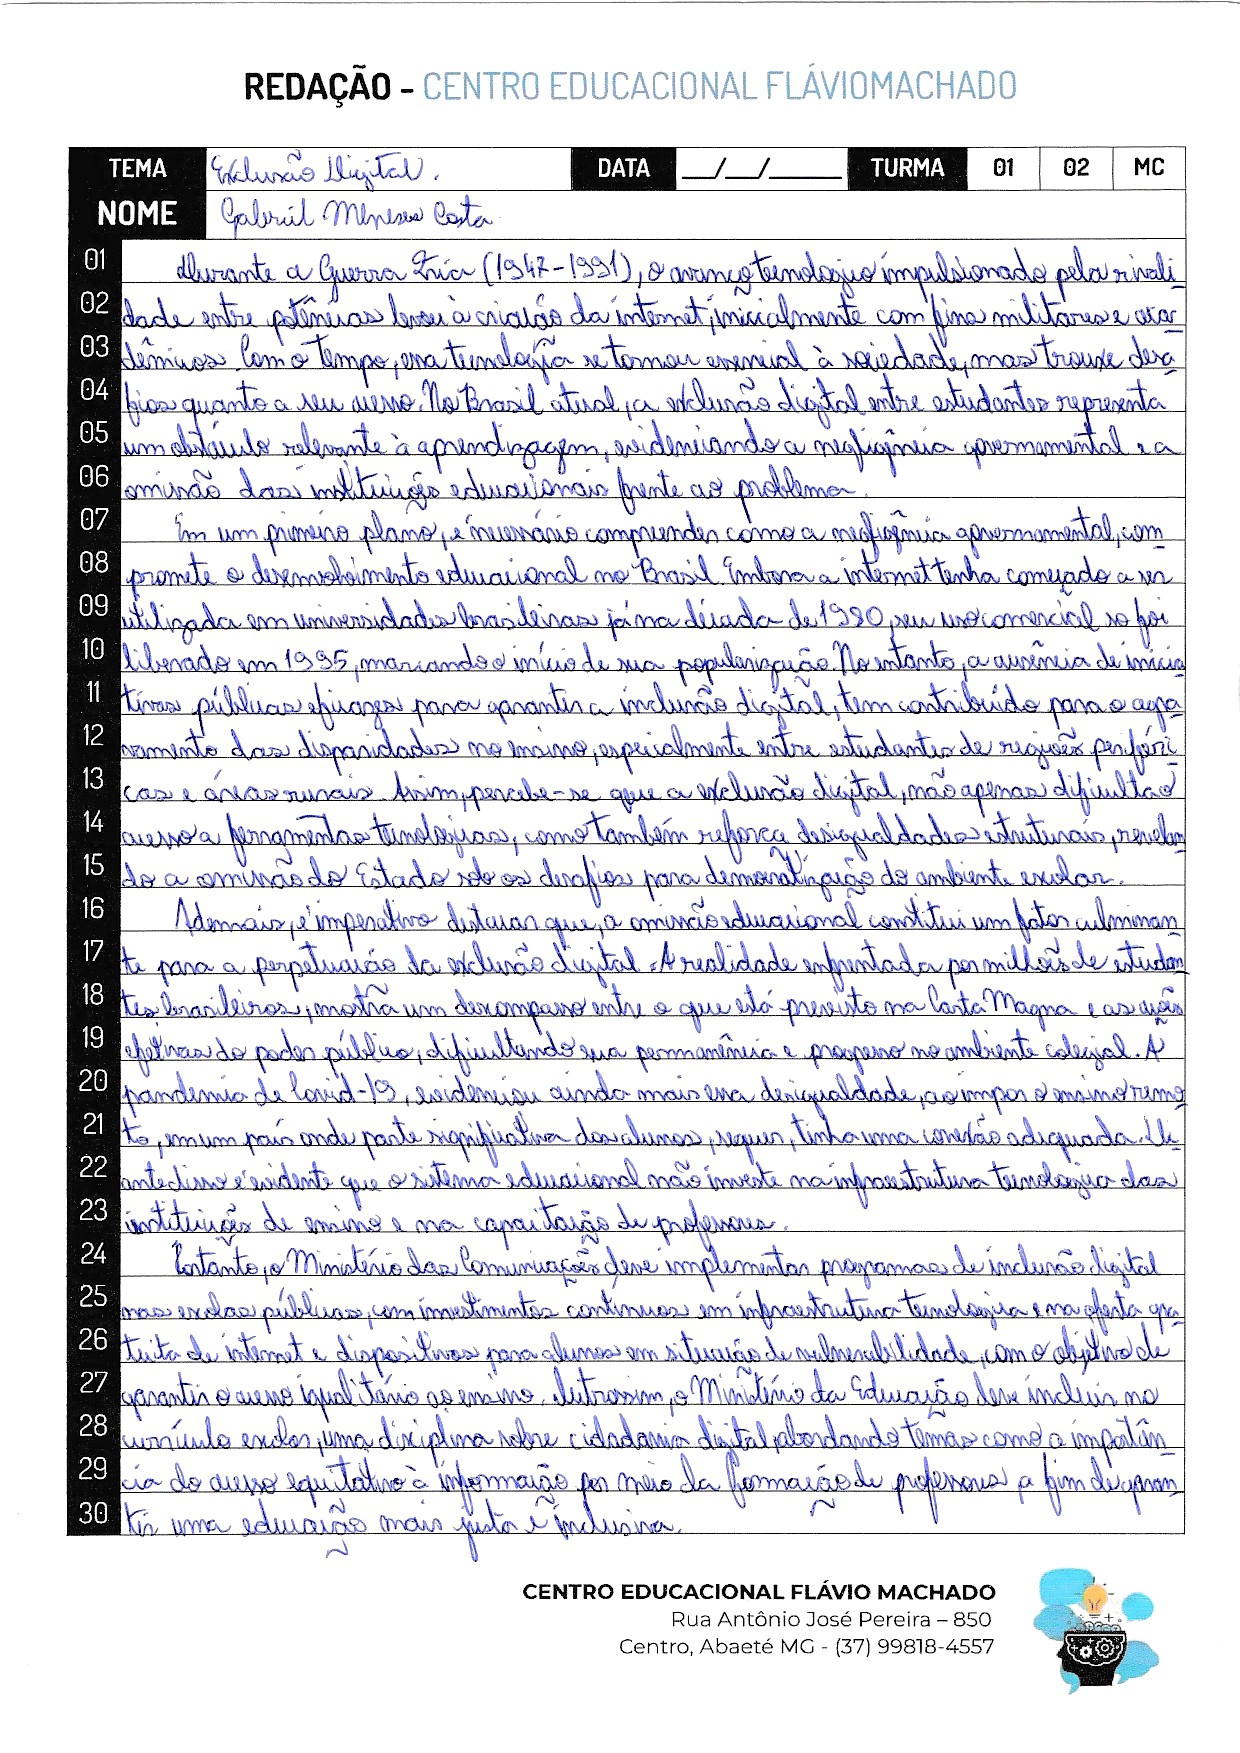 REDAÇÃO - CENTRO EDUCACIONAL FLÁVIOMACHADO
TEMA Exclusão Digital. DATA __/__/____ TURMA 01 02 MC
NOME Gabriel Meneses Costa
01 Durante a Guerra Fria (1947-1991), o avanço tecnologico impulsionado pela rivali
02 dade entre potências levou à criação da internet, inicialmente com fins militares e aca
03 dêmicos. Com o tempo, essa tecnologia se tornou essencial à sociedade, mas trouxe desa
04 fios quanto a seu acesso. No Brasil atual, a exclusão digital entre estudantes representa
05 um obstáculo relevante à aprendizagem, evidenciando a negligência governamental e a
06 omissão das instituições educacionais frente ao problema.
07 Em um primeiro plano, é necessário compreender como a negligência governamental, com
08 promete o desenvolvimento educacional no Brasil. Embora a internet tenha começado a ser
09 utilizada em universidades brasileiras já na década de 1980, seu uso comercial so foi
10 liberado em 1995, marcando o início de sua popularização. No entanto, a ausência de inicia
11 tivas públicas eficazes para garantir a inclusão digital, tem contribuído para o agra
12 vamento das disparidades no ensino, especialmente entre estudantes de regiões periféri
13 cas e áreas rurais. Assim, percebe-se que a exclusão digital, não apenas dificulta o
14 acesso a ferramentas tecnologicas, como também reforça desigualdades estruturais, revelan
15 do a omissão do Estado sob os desafios para democratização do ambiente escolar.
16 Ademais, é imperativo destacar que, a omissão educacional constitui um fator culminan
17 te para a perpetuação da exclusão digital. A realidade enfrentada por milhões de estudan
18 tes brasileiros, mostra um descompasso entre o que está previsto na Carta Magna e as ações
19 efetivas do poder público, dificultando sua permanência e progresso no ambiente colegial. A
20 pandemia de Covid-19, evidenciou ainda mais essa desigualdade, ao impor o ensino remo
21 to, em um país onde parte significativa dos alunos, sequer, tinha uma conexão adequada. Di
22 ante disso é evidente que o sistema educacional não investe na infraestrutura tecnologica das
23 instituições de ensino e na capacitação de professores.
24 Portanto, o Ministério das Comunicações deve implementar programas de inclusão digital
25 nas escolas públicas, com investimentos contínuos em infraestrutura tecnologica e na oferta gra
26 tuita de internet e dispositivos para alunos em situação de vulnerabilidade, com o objetivo de
27 garantir o acesso igualitário ao ensino. Outrossim, o Ministério da Educação deve incluir no
28 currículo escolar, uma disciplina sobre cidadania digital, abordando temas como a importân
29 cia do acesso equitativo à informação por meio da formação de professores a fim de garan
30 tir uma educação mais justa e inclusiva.
CENTRO EDUCACIONAL FLÁVIO MACHADO
Rua Antônio José Pereira – 850
Centro, Abaeté MG - (37) 99818-4557